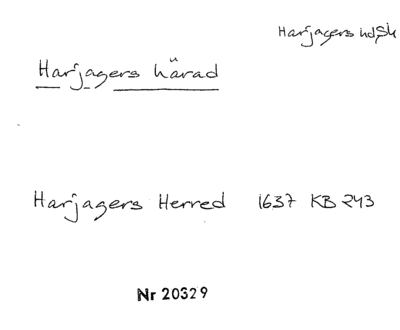 Harjagers hd, Sk
Harjagers härad
Harjagers Herred 1637 KB 243
Nr 20329